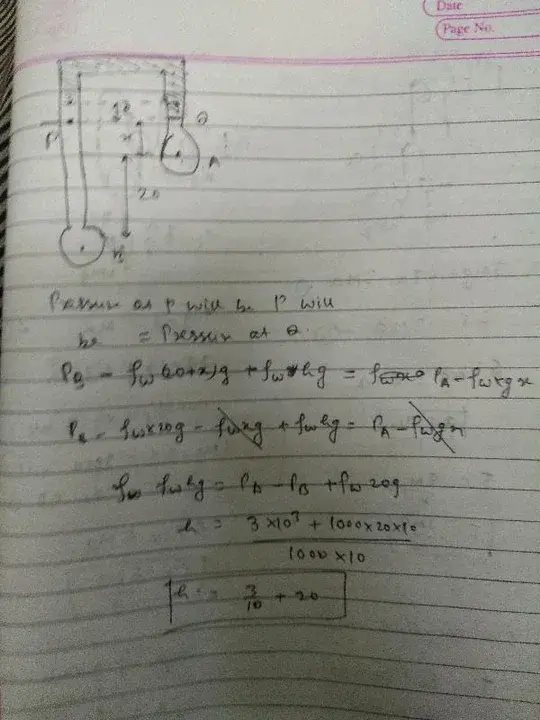 Date
Page No.
P
Q
x
A
20
Pressure at P will be P will
be = Pressure at Q.
P_B - ρ_w(20+x)g + ρ_w hg = P_A - ρ_w x g x
P_B - ρ_w x 20g - ρ_w xg + ρ_w hg = P_A - ρ_w g x
ρ_w hg = P_A - P_B + ρ_w 20g
h = 3 × 10³ + 1000 × 20 × 10
1000 × 10
h = 3/10 + 20